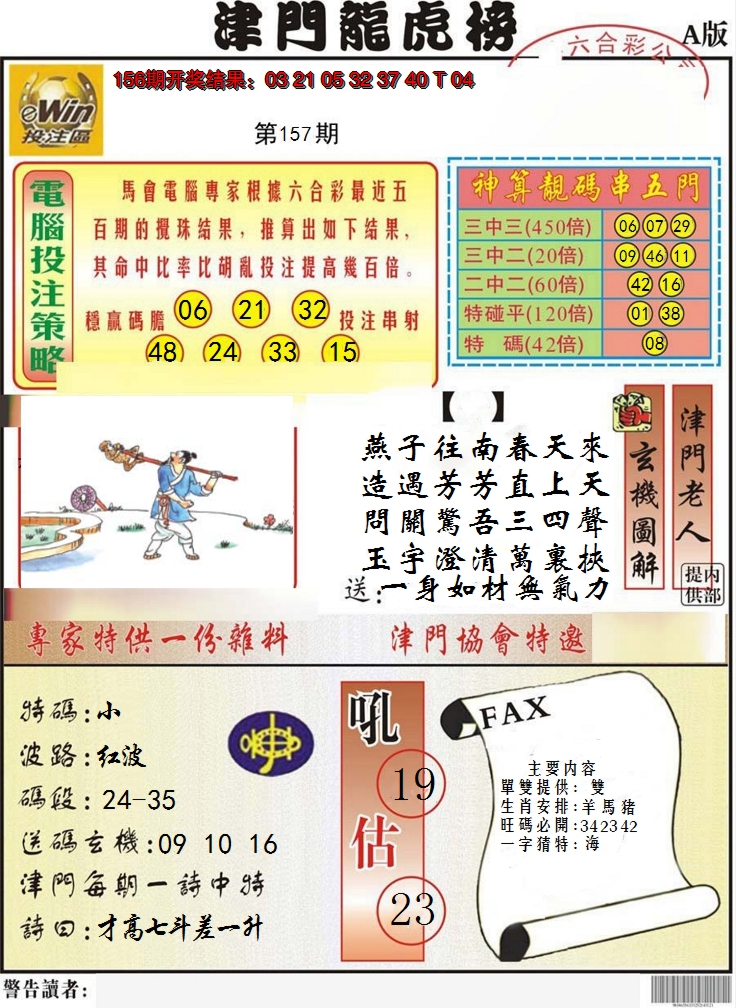 津門龍虎榜
A版
六合彩公
eWin
投注區
156期开奖结果：03 21 05 32 37 40 T 04
第157期
電腦投注策略
馬會電腦專家根據六合彩最近五
百期的攪珠结果，推算出如下结果，
其命中比率比胡亂投注提高幾百倍。
穩贏碼膽 06 21 32 投注串射
48 24 33 15
神算靚碼串五門
三中三(450倍) 06 07 29
三中二(20倍) 09 46 11
二中二(60倍) 42 16
特碰平(120倍) 01 38
特 碼(42倍) 08
【 】
燕子往南春天來
造遇芳芳直上天
問關驚吾三四聲
玉宇澄清萬裏挾
送：一身如材無氣力
玄機圖解
津門老人
内部提供
專家特供一份雜料
津門協會特邀
特碼:小
波路:红波
碼段:24-35
送碼玄機:09 10 16
津門每期一詩中特
詩曰:才高七斗差一升
吼
19
估
23
FAX
主要内容
單雙提供：雙
生肖安排:羊馬豬
旺码必開:342342
一字猜特：海
警告讀者：